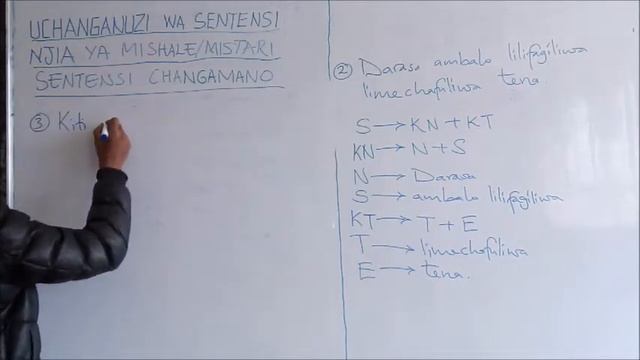 UCHANGANUZI WA SENTENSI
NJIA YA MISHALE/MISTARI
SENTENSI CHANGAMANO
③ Kiti
② Darasa ambalo lilifagiliwa
limechafuliwa tena.
S → KN + KT
KN → N + S
N → Darasa
S → ambalo lilifagiliwa
KT → T + E
T → limechafuliwa
E → tena.